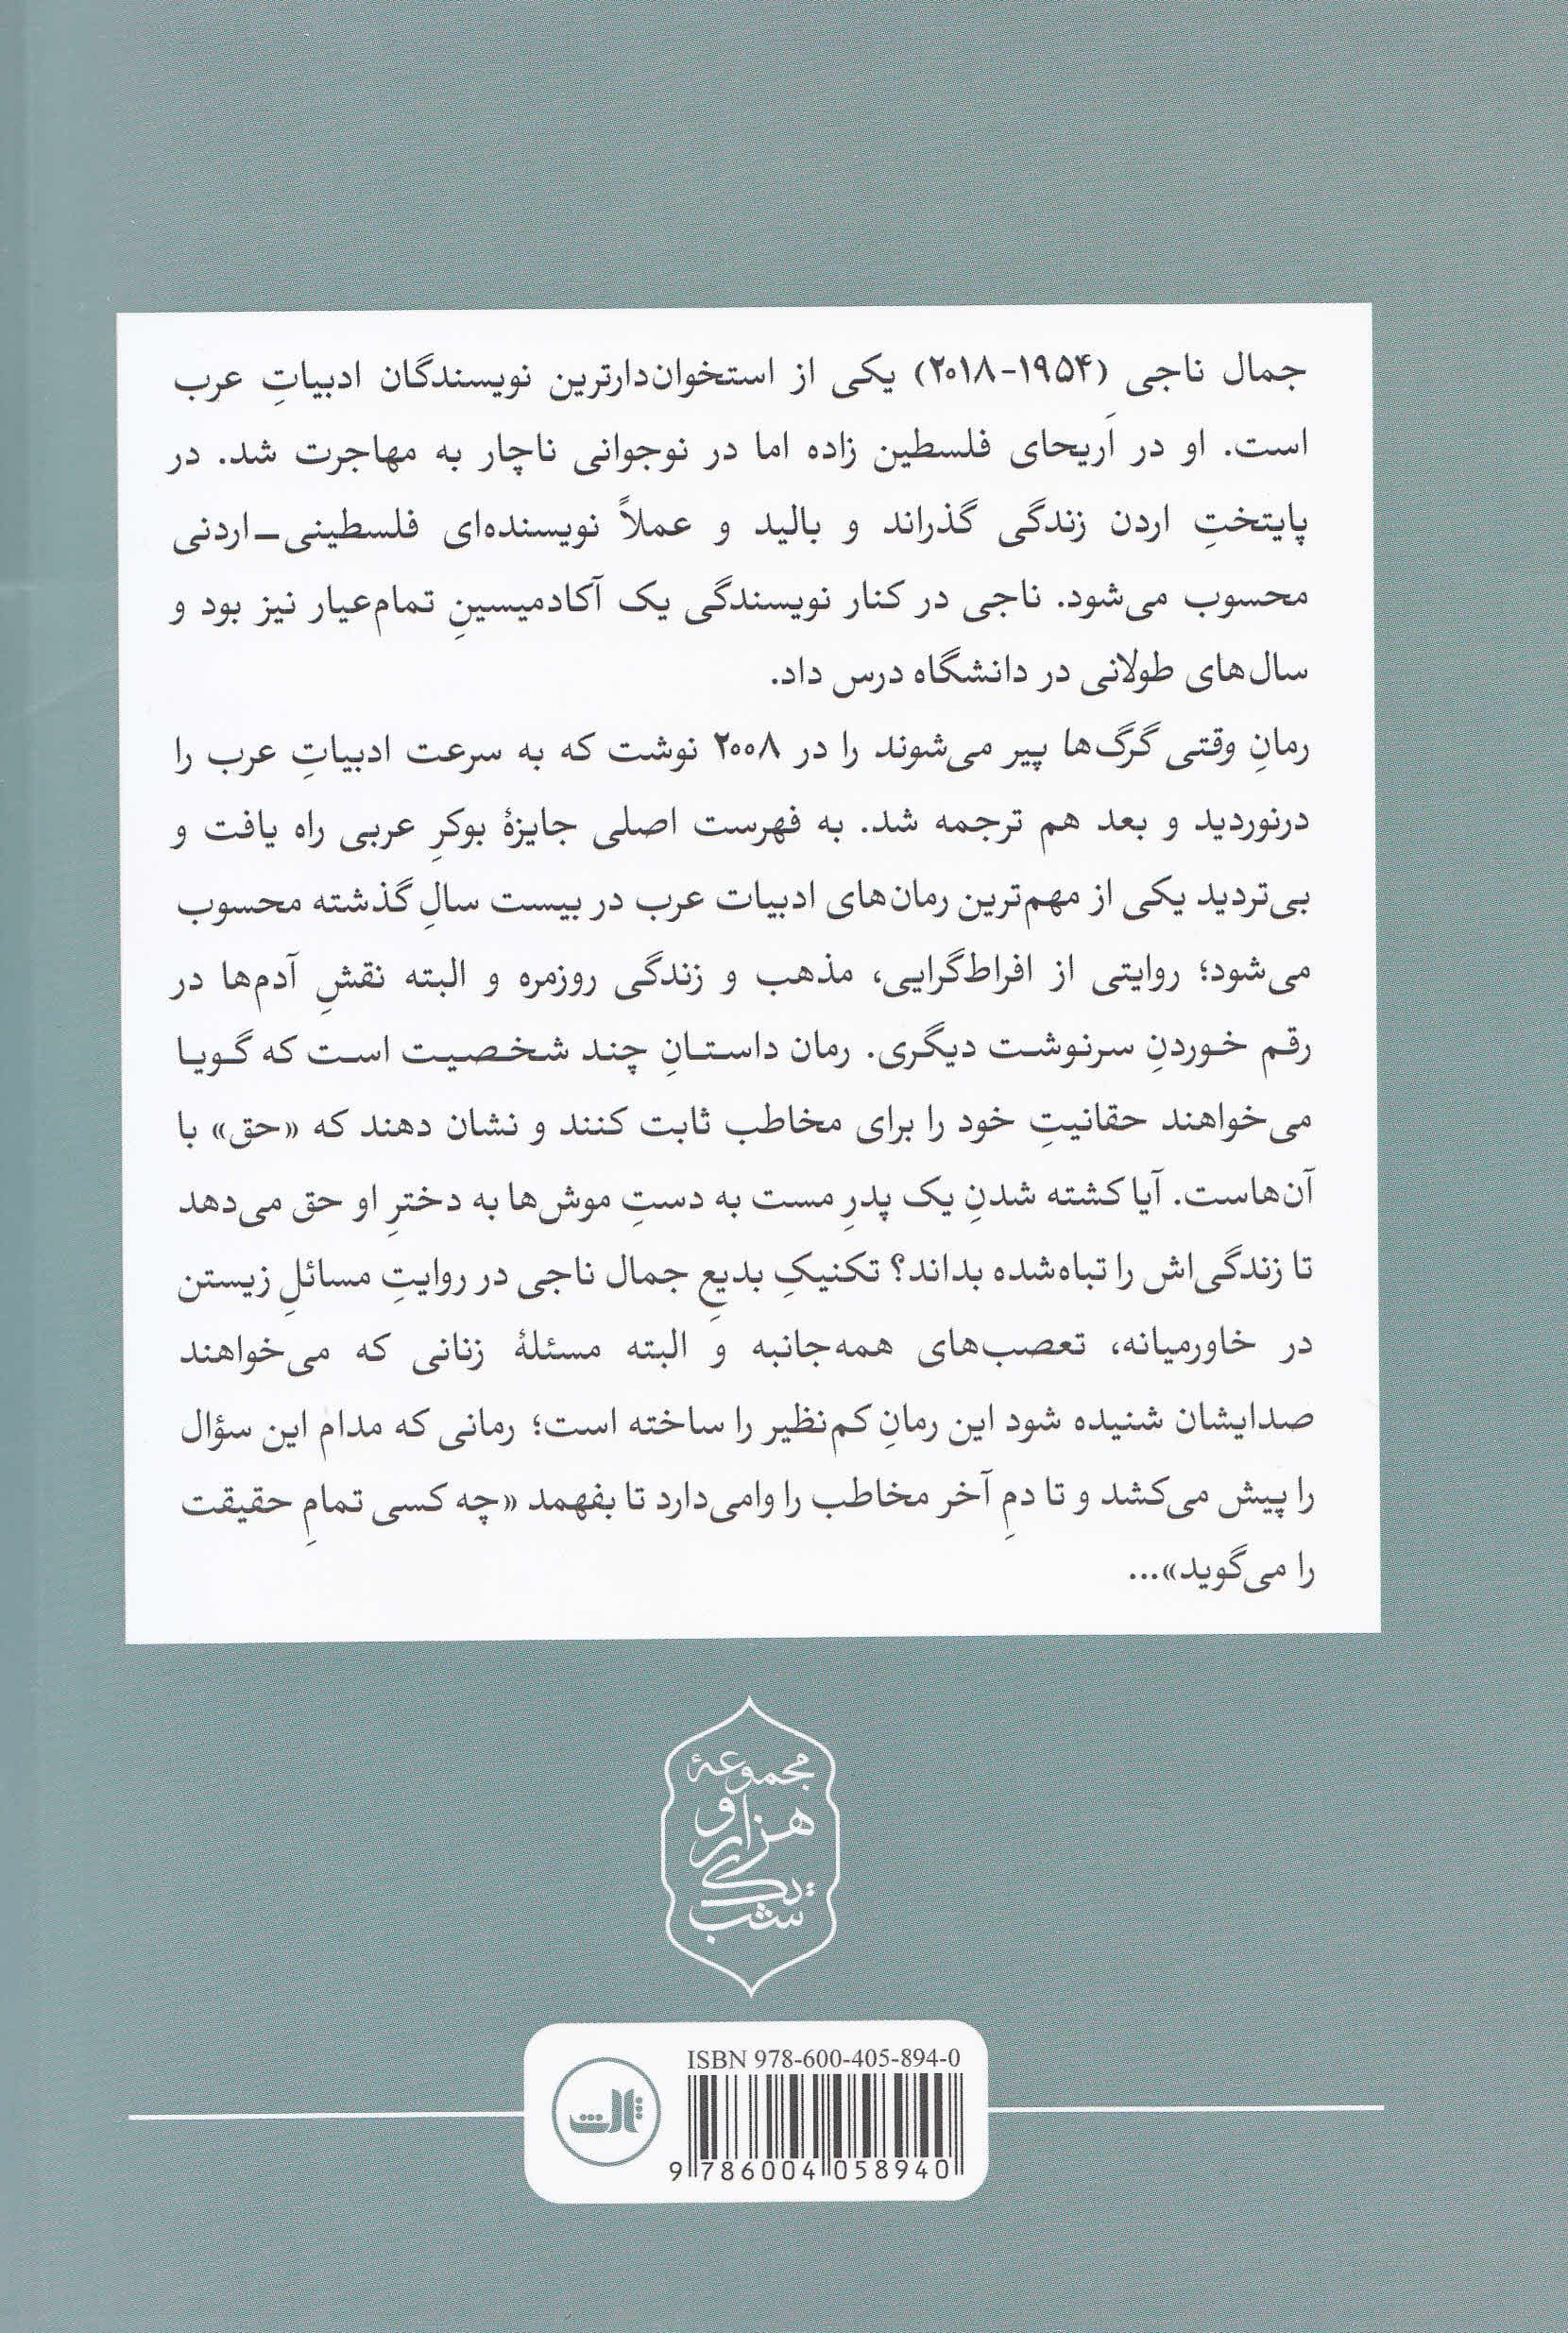 جمال ناجی (۱۹۵۴-۲۰۱۸) یکی از استخوان‌دارترین نویسندگان ادبیاتِ عرب
است. او در اَریحای فلسطین زاده اما در نوجوانی ناچار به مهاجرت شد. در
پایتختِ اردن زندگی گذراند و بالید و عملاً نویسنده‌ای فلسطینی–اردنی
محسوب می‌شود. ناجی در کنار نویسندگی یک آکادمیسینِ تمام‌عیار نیز بود و
سال‌های طولانی در دانشگاه درس داد.
رمانِ وقتی گرگ‌ها پیر می‌شوند را در ۲۰۰۸ نوشت که به سرعت ادبیاتِ عرب را
درنوردید و بعد هم ترجمه شد. به فهرست اصلی جایزهٔ بوکرِ عربی راه یافت و
بی‌تردید یکی از مهم‌ترین رمان‌های ادبیات عرب در بیست سالِ گذشته محسوب
می‌شود؛ روایتی از افراط‌گرایی، مذهب و زندگی روزمره و البته نقشِ آدم‌ها در
رقم خوردنِ سرنوشت دیگری. رمان داستانِ چند شخصیت است که گویا
می‌خواهند حقانیتِ خود را برای مخاطب ثابت کنند و نشان دهند که «حق» با
آن‌هاست. آیا کشته شدنِ یک پدرِ مست به دستِ موش‌ها به دخترِ او حق می‌دهد
تا زندگی‌اش را تباه‌شده بداند؟ تکنیکِ بدیعِ جمال ناجی در روایتِ مسائلِ زیستن
در خاورمیانه، تعصب‌های همه‌جانبه و البته مسئلهٔ زنانی که می‌خواهند
صدایشان شنیده شود این رمانِ کم‌نظیر را ساخته است؛ رمانی که مدام این سؤال
را پیش می‌کشد و تا دمِ آخر مخاطب را وامی‌دارد تا بفهمد «چه کسی تمامِ حقیقت
را می‌گوید»...
مجموعهٔ
هزار و
یک
شب
ISBN 978-600-405-894-0
ثالث
9 786004 058940